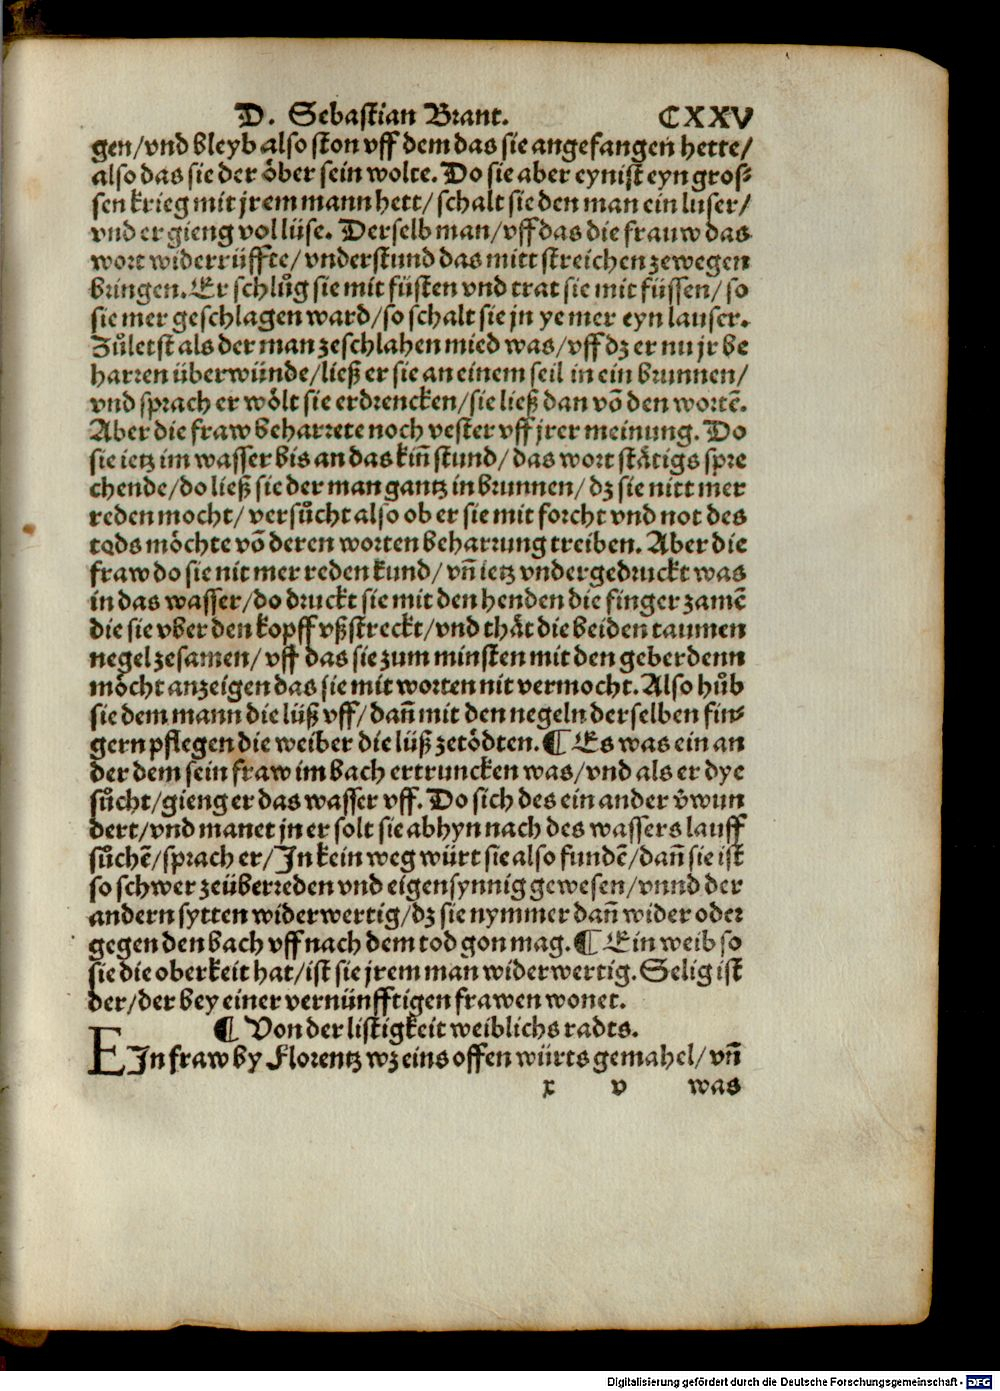 D. Sebastian Brant. CXXV
gen/vnd bleyb also ston vff dem das sie angefangen hette/
also das sie der öber sein wolte. Do sie aber eynist eyn gros⸗
sen krieg mit jrem mann hett/ schalt sie den man ein luser/
vnd er gieng vol lüse. Derselb man/ vff das die frauw das
wort widerrüffte/ vnderstund das mitt streichen zewegen
bringen. Er schlůg sie mit füsten vnd trat sie mit füssen/ so
sie mer geschlagen ward/ so schalt sie jn ye mer eyn lauser.
Zůletst als der man zeschlahen mied was/ vff dz er nu jr be
harren überwünde/ ließ er sie an einem seil in ein brunnen/
vnd sprach er wölt sie erdrencken/ sie ließ dan võ den wortẽ.
Aber die fraw beharrete noch vester vff jrer meinung. Do
sie ietz im wasser bis an das kiñ stund/ das wort stätigs spre
chende/ do ließ sie der man gantz in brunnen/ dz sie nitt mer
reden mocht/ versůcht also ob er sie mit forcht vnd not des
tods möchte võ deren worten beharrung treiben. Aber die
fraw do sie nit mer reden kund/ vñ ietz vndergedruckt was
in das wasser/ do druckt sie mit den henden die finger zamẽ
die sie vber den kopff vßstreckt/ vnd thät die beiden taumen
negel zesamen/ vff das sie zum minsten mit den geberdenn
möcht anzeigen das sie mit worten nit vermocht. Also hůb
sie dem mann die lüß vff/ dañ mit den negeln derselben fin⸗
gern pflegen die weiber die lüß zetödten. ¶ Es was ein an
der dem sein fraw im bach ertruncken was/ vnd als er dye
sůcht/ gieng er das wasser vff. Do sich des ein ander v̂wun
dert/ vnd manet jn er solt sie abhyn nach des wassers lauff
sůchẽ/ sprach er/ In kein weg würt sie also fundẽ/ dañ sie ist
so schwer zeüberreden vnd eigensynnig gewesen/ vnnd der
andern sytten widerwertig/ dz sie nymmer dañ wider oder
gegen den bach vff nach dem tod gon mag. ¶ Ein weib so
sie die oberkeit hat/ ist sie jrem man widerwertig. Selig ist
der/ der bey einer vernünfftigen frawen wonet.
¶ Von der listigkeit weiblichs radts.
EIn fraw by Florentz wz eins offen würts gemahel/ vñ
x v was
Digitalisierung gefördert durch die Deutsche Forschungsgemeinschaft - DFG